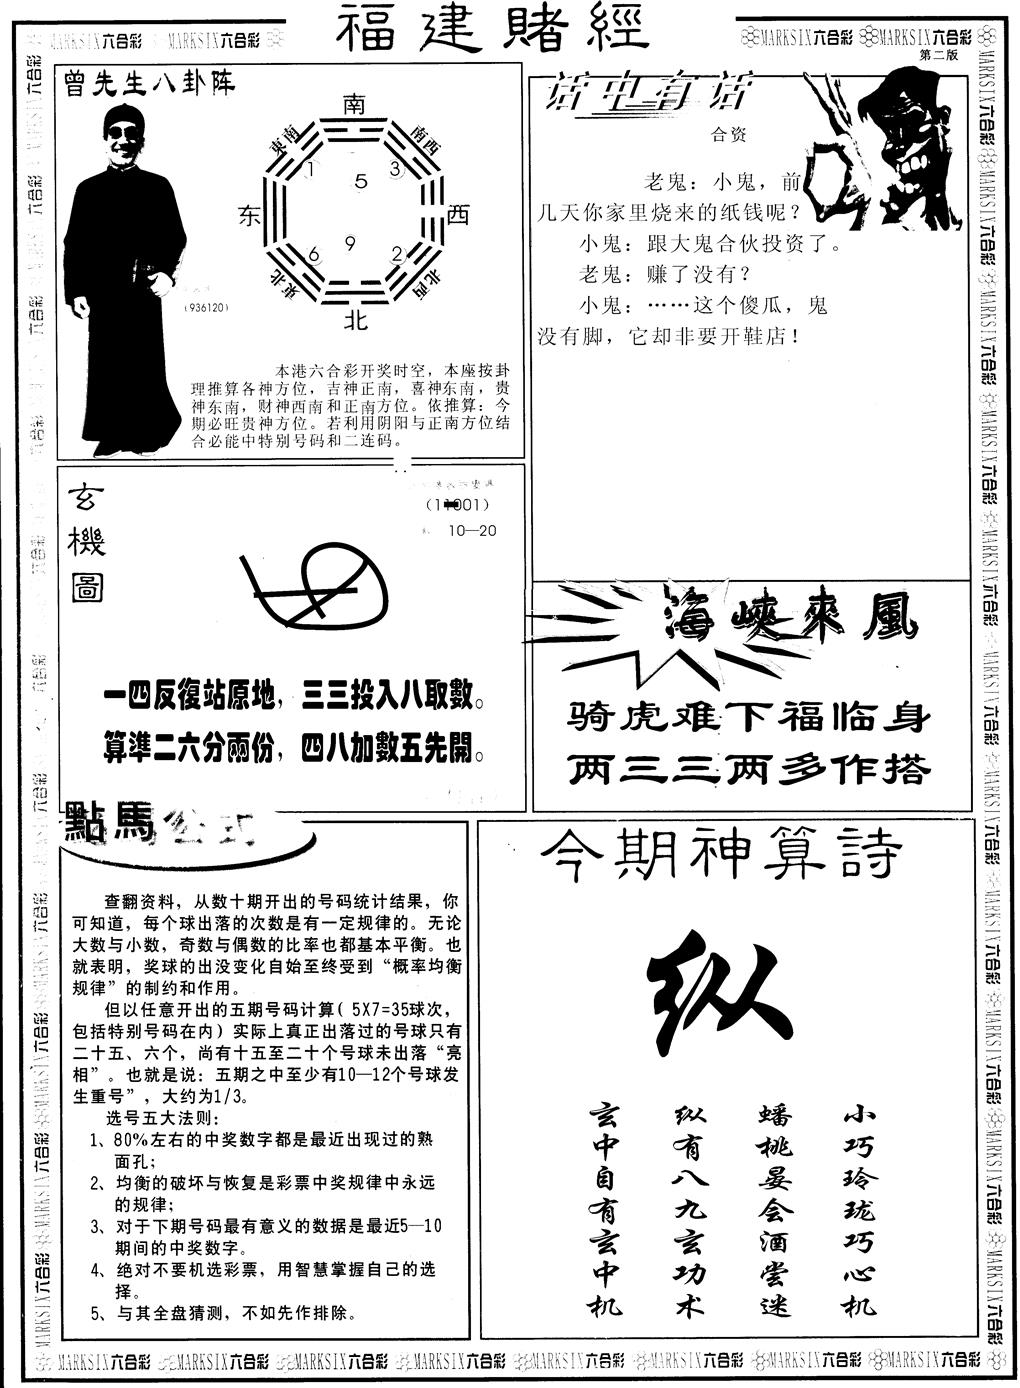 福建賭經
MARKSIX六合彩 MARKSIX六合彩
MARKSIX六合彩 MARKSIX六合彩
第二版
曾先生八卦阵
南
東南 南西
1 3
5
东 西
9
6 2
東北 北西
北
(936120)
本港六合彩开奖时空，本座按卦
理推算各神方位，吉神正南，喜神东南，贵
神东南，财神西南和正南方位。依推算：今
期必旺贵神方位。若利用阴阳与正南方位结
合必能中特别号码和二连码。
话中有话
合资
老鬼：小鬼，前
几天你家里烧来的纸钱呢？
小鬼：跟大鬼合伙投资了。
老鬼：赚了没有？
小鬼：……这个傻瓜，鬼
没有脚，它却非要开鞋店！
玄機圖
10—20
一四反復站原地，三三投入八取數。
算準二六分兩份，四八加數五先開。
海峽來風
骑虎难下福临身
两三三两多作搭
點馬公式
查翻资料，从数十期开出的号码统计结果，你
可知道，每个球出落的次数是有一定规律的。无论
大数与小数，奇数与偶数的比率也都基本平衡。也
就表明，奖球的出没变化自始至终受到“概率均衡
规律”的制约和作用。
但以任意开出的五期号码计算( 5X7=35球次，
包括特别号码在内）实际上真正出落过的号球只有
二十五、六个，尚有十五至二十个号球未出落“亮
相”。也就是说：五期之中至少有10—12个号球发
生重号”，大约为1/3。
选号五大法则：
1、80%左右的中奖数字都是最近出现过的熟
面孔；
2、均衡的破坏与恢复是彩票中奖规律中永远
的规律；
3、对于下期号码最有意义的数据是最近5—10
期间的中奖数字。
4、绝对不要机选彩票，用智慧掌握自己的选
择。
5、与其全盘猜测，不如先作排除。
今期神算詩
纵
小巧玲珑巧心机
蟠桃晏会酒尝迷
纵有八九玄功术
玄中自有玄中机
MARKSIX六合彩 MARKSIX六合彩 MARKSIX六合彩 MARKSIX六合彩 MARKSIX六合彩 MARKSIX六合彩 MARKSIX六合彩 MARKSIX六合彩